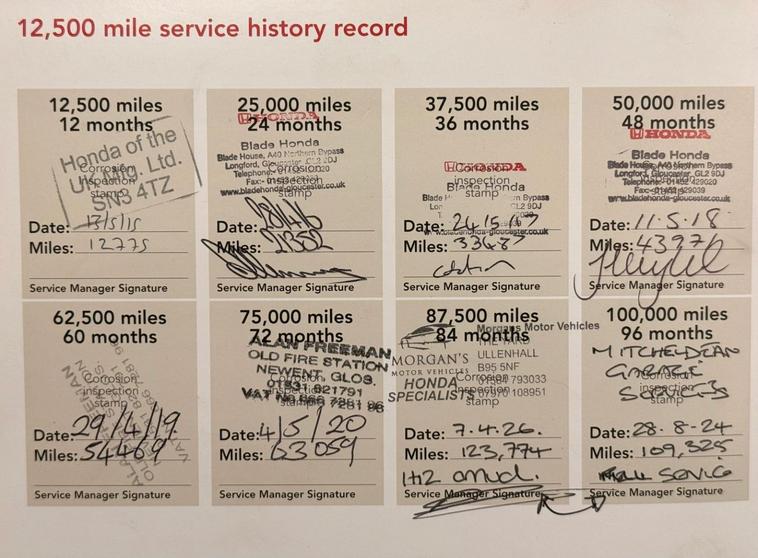 12,500 mile service history record
12,500 miles
12 months
Honda of the
UK Mfg. Ltd.
SN3 4TZ
Corrosion
inspection
stamp
Date: 13/5/15
Miles: 12775
Service Manager Signature
25,000 miles
24 months
HONDA
Blade Honda
Blade House, A40 Northern Bypass
Longford, Gloucester, GL2 9DJ
Corrosion
inspection
stamp
www.bladehonda-gloucester.co.uk
Date:
Miles:
Service Manager Signature
37,500 miles
36 months
HONDA
Blade Honda
Corrosion
inspection
stamp
www.bladehonda-gloucester.co.uk
Date:
Miles:
Service Manager Signature
50,000 miles
48 months
HONDA
Blade Honda
Blade House, A40 Northern Bypass
Longford, Gloucester, GL2 9DJ
Telephone: 01452 429020
Fax: 01452 429039
www.bladehonda-gloucester.co.uk
Date: 11.5.18
Miles: 43976
Service Manager Signature
62,500 miles
60 months
Corrosion
inspection
stamp
Date: 29/4/19
Miles: 54469
Service Manager Signature
75,000 miles
72 months
ALAN FREEMAN
OLD FIRE STATION
NEWENT, GLOS.
01531 821791
Corrosion
inspection
stamp
Date: 4/5/20
Miles: 63059
Service Manager Signature
87,500 miles
84 months
Morgans Motor Vehicles
ULLENHALL
B95 5NF
MORGAN'S
MOTOR VEHICLES
HONDA
SPECIALISTS
Corrosion
inspection
stamp
07970 108951
Date: 7.4.26.
Miles: 123,774
Service Manager Signature
100,000 miles
96 months
MITCHELDEAN
GARAGE
SERVICES
Corrosion
inspection
stamp
Date: 28-8-24
Miles: 109,325
SERVICE
Service Manager Signature